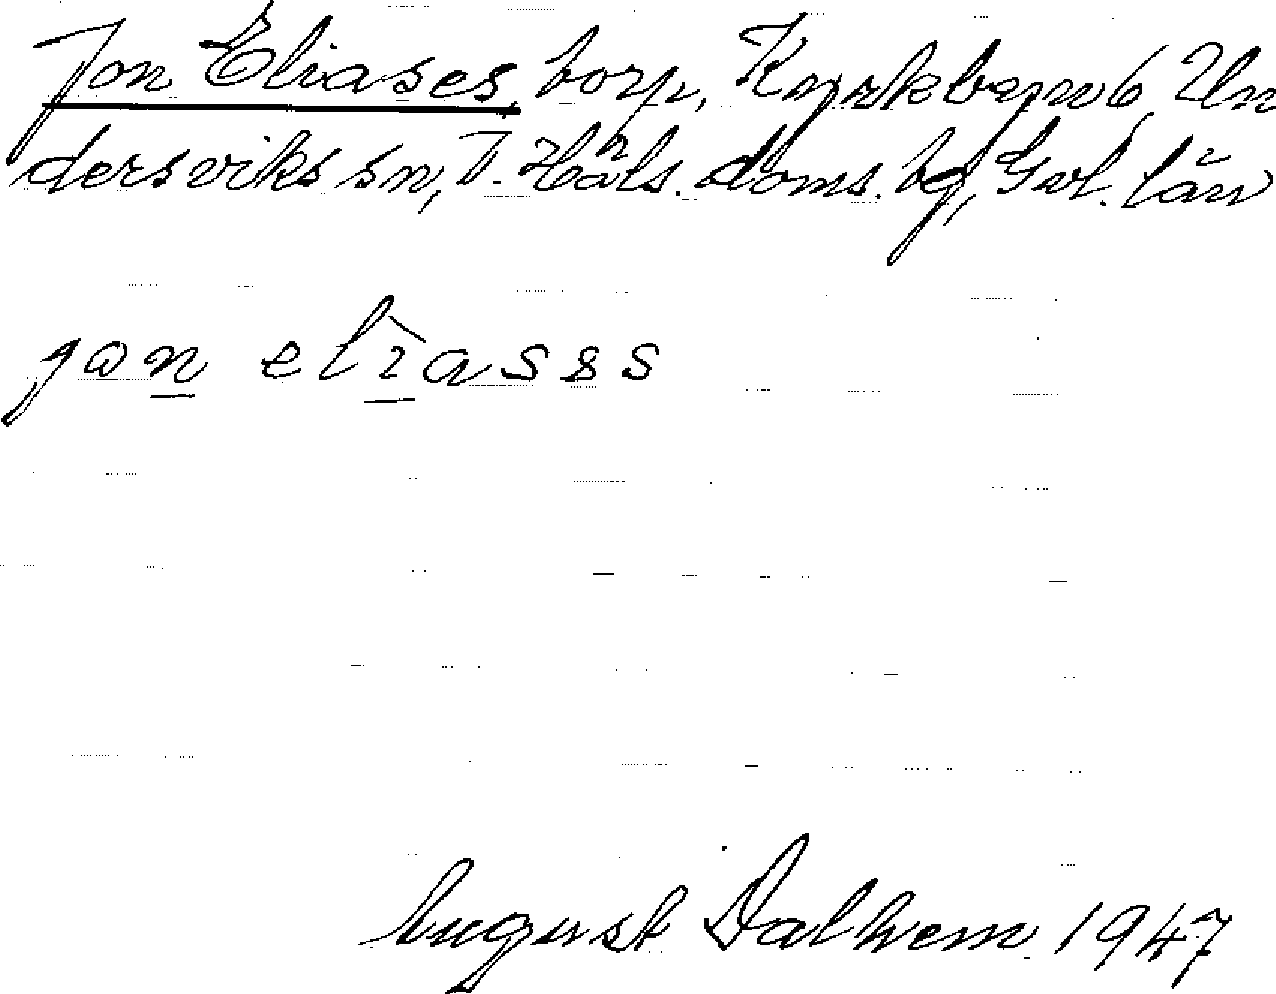 Jon Eliases torp, Kyrkbyn 6, Un
dersviks sn, V. Häls. doms. bg, Gvl. län
jon eliasss
August Dalhem 1947